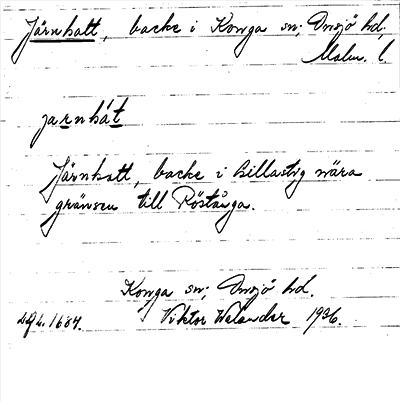 Järnhatt, backe i Konga sn; Onsjö hd,
Malm. l.
jarnhát
Järnhatt, backe i Billastig nära
gränsen till Röstånga.
Konga sn; Onsjö hd.
Viktor Welander 1936.
1684.